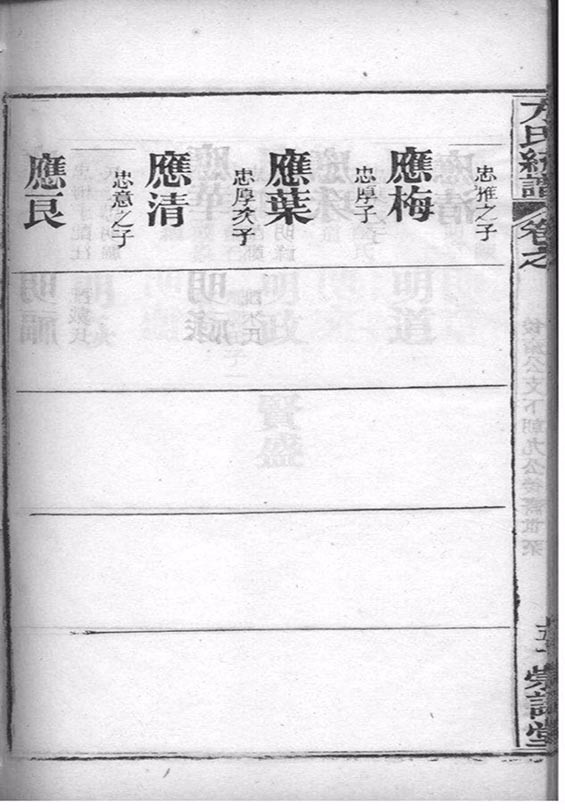 方氏統譜
卷之
忠惟之子
應梅
忠厚子
應葉
忠厚次子
應清
忠意之子
應良